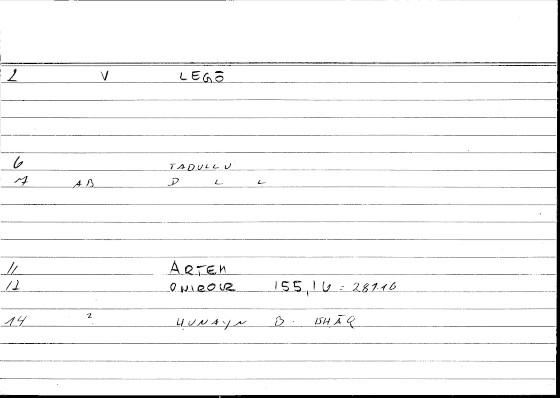 2 V LEGŌ
6 TADULLU
7 AB D L L
11 ARTEM
12 ONIROCR 155,16 = 28716
14 2 HUNAYN B. ISHĀQ